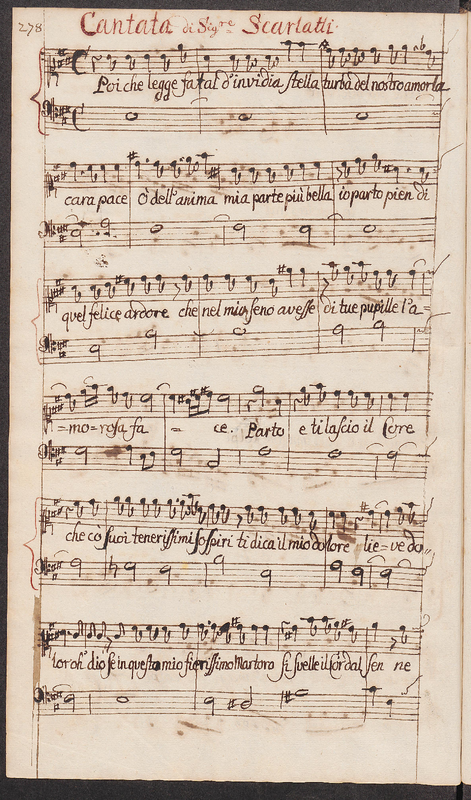 278
Cantata di Sig.re Scarlatti.
Poi che legge fatal d'invidia stella turba del nostro amor la
cara pace ò dell'anima mia parte più bella io parto pien di
quel felice ardore che nel mio seno avesse di tue pupille l'a=
=mo=rosa fa = ce. Parto e ti lascio il Core
che co suoi tenerissimi sospiri ti dica il mio dolore lie=ve do=
lor oh' dio se in questo mio fierissimo Martoro si svelle il Cor dal sen ne